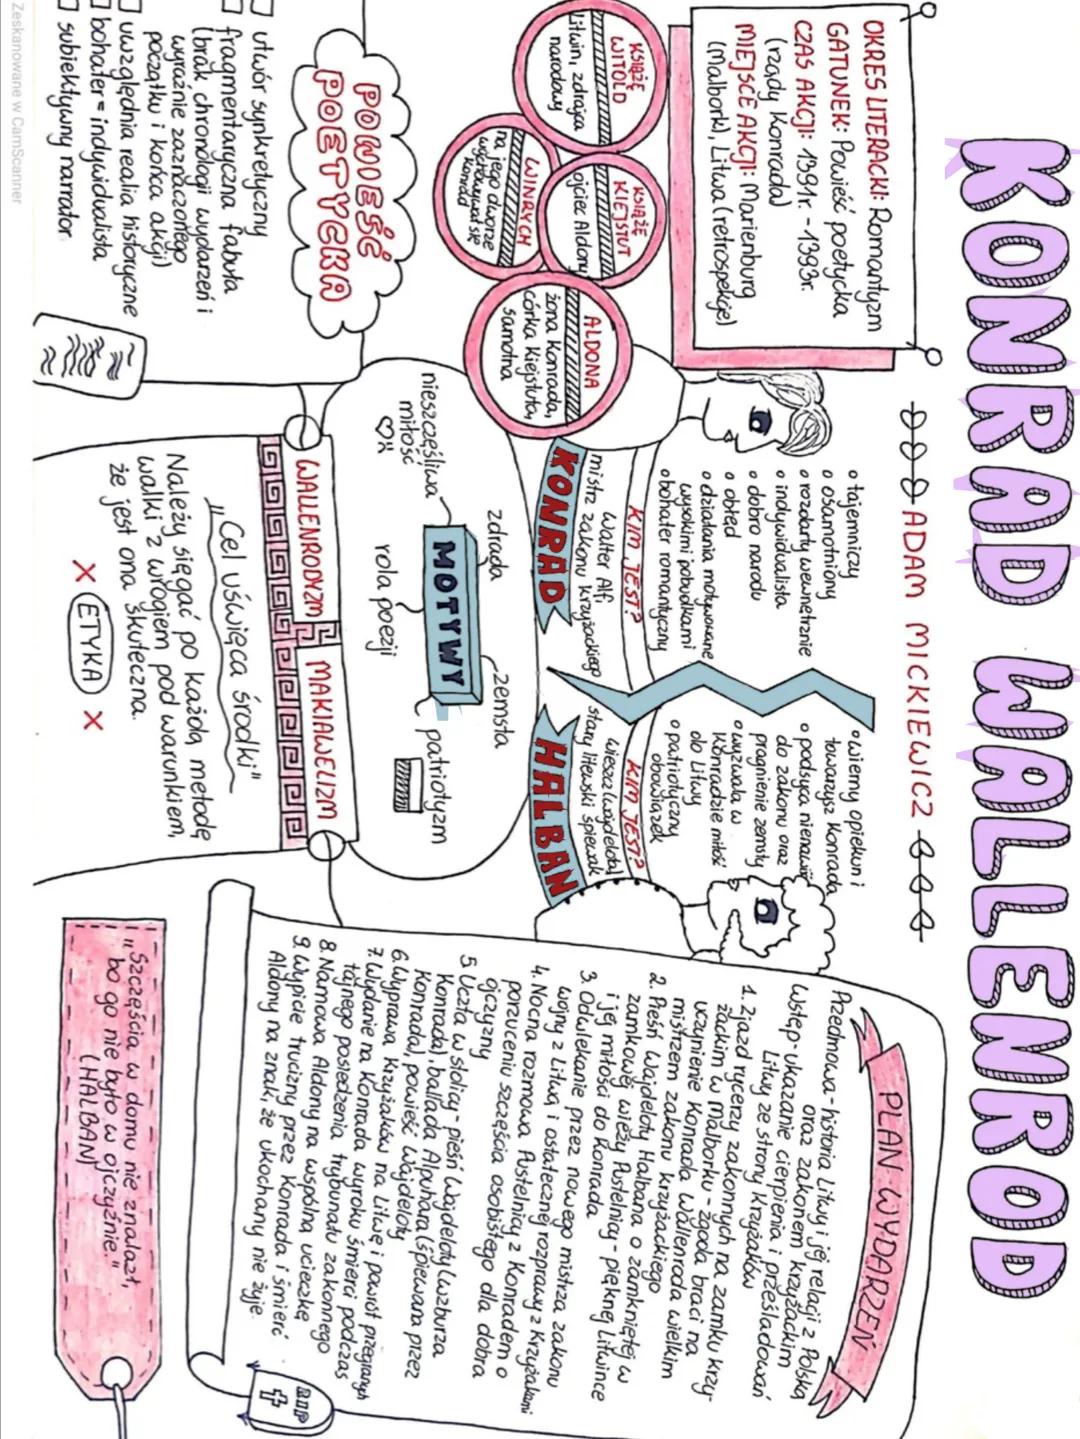 KONRAD WALLENROD
ADAM MICKIEWICZ
OKRES LITERACKI: Romantyzm
GATUNEK: Powieść poetycka
CZAS AKCJI: 1391r. - 1393r.
(rządy Konrada)
MIEJSCE AKCJI: Marienburg
(Malbork), Litwa (retrospekcje)
KSIĄŻĘ
WITOLD
Litwin, zdrajca
narodowy
KSIĄŻĘ
KIEJSTUT
ojciec Aldony
WINRYCH
na jego dworze
wychowywał się
Konrad
ALDONA
żona Konrada,
córka Kiejstuta,
samotna
• tajemniczy
• osamotniony
• rozdarty wewnętrznie
• indywidualista
• dobro narodu
• obłęd
• działania motywowane
wysokimi pobudkami
• bohater romantyczny
KIM JEST?
Walter Alf,
mistrz zakonu krzyżackiego
KONRAD
• wierny opiekun i
towarzysz Konrada
• podsyca nienawiść
do zakonu oraz
pragnienie zemsty
• wyzwala w
Konradzie miłość
do Litwy
• patriotyczny
obowiązek
KIM JEST?
wieszcz (wajdelota)
stary litewski śpiewak
HALBAN
POWIEŚĆ
POETYCKA
utwór synkretyczny
fragmentaryczna fabuła
(brak chronologii wydarzeń i
wyraźnie zaznaczonego
początku i końca akcji)
uwzględnia realia historyczne
bohater = indywidualista
subiektywny narrator
MOTYWY
zdrada
zemsta
nieszczęśliwa
miłość
rola poezji
patriotyzm
WALLENRODYZM
MAKIAWELIZM
"Cel uświęca środki"
Należy sięgać po każdą metodę
walki z wrogiem pod warunkiem,
że jest ona skuteczna.
X ETYKA X
PLAN WYDARZEŃ
Przedmowa - historia Litwy i jej relacji z Polską
oraz zakonem krzyżackim
Wstęp - ukazanie cierpienia i prześladowań
Litwy ze strony Krzyżaków
1. Zjazd rycerzy zakonnych na zamku krzy-
żackim w Malborku - zgoda braci na
uczynienie Konrada Wallenroda wielkim
mistrzem zakonu krzyżackiego
2. Pieśń Wajdeloty Halbana o zamkniętej w
zamkowej wieży Pustelnicy - pięknej Litwince
i jej miłości do Konrada
3. Odwlekanie przez nowego mistrza zakonu
wojny z Litwą i ostatecznej rozprawy z Krzyżakami
4. Nocna rozmowa Pustelnicy z Konradem o
porzuceniu szczęścia osobistego dla dobra
ojczyzny
5. Uczta w stolicy - pieśń Wajdeloty (wzburza
Konrada), ballada Alpuhara (śpiewana przez
Konrada), powieść Wajdeloty
6. Wyprawa Krzyżaków na Litwę i powrót przegranych
7. Wydanie na Konrada wyroku śmierci podczas
tajnego posiedzenia trybunału zakonnego
8. Namowa Aldony na wspólną ucieczkę
9. Wypicie trucizny przez Konrada i śmierć
Aldony na znak, że ukochany nie żyje.
RIP
"Szczęścia w domu nie znalazł,
bo go nie było w ojczyźnie."
(HALBAN)
Zeskanowane w CamScanner